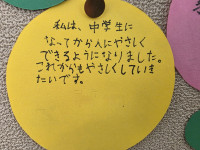 私は、中学生に
なってから人にやさしく
できるようになりました。
これからもやさしくしていき
たいです。